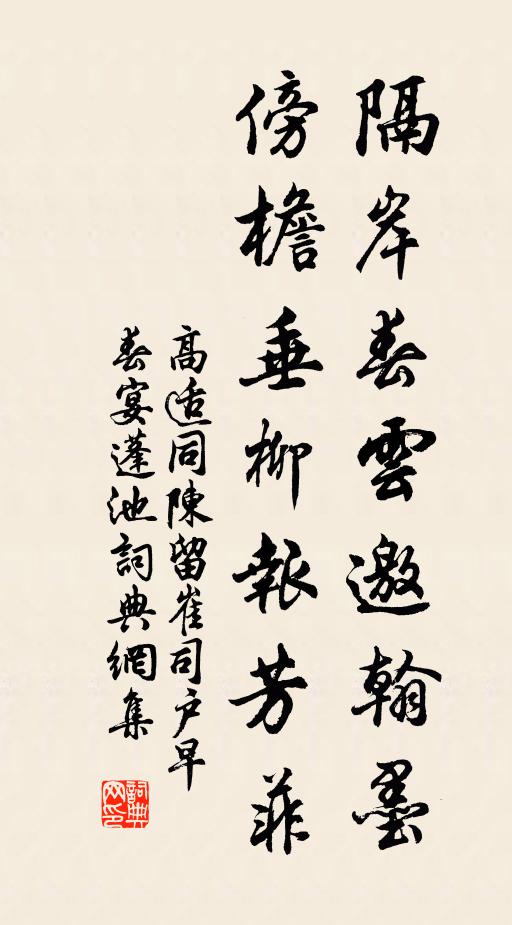 隔岸春雲邀翰墨
傍檐垂柳報芳菲
高适同陳留崔司户早
春宴蓬池詞典網集
詞典
网印